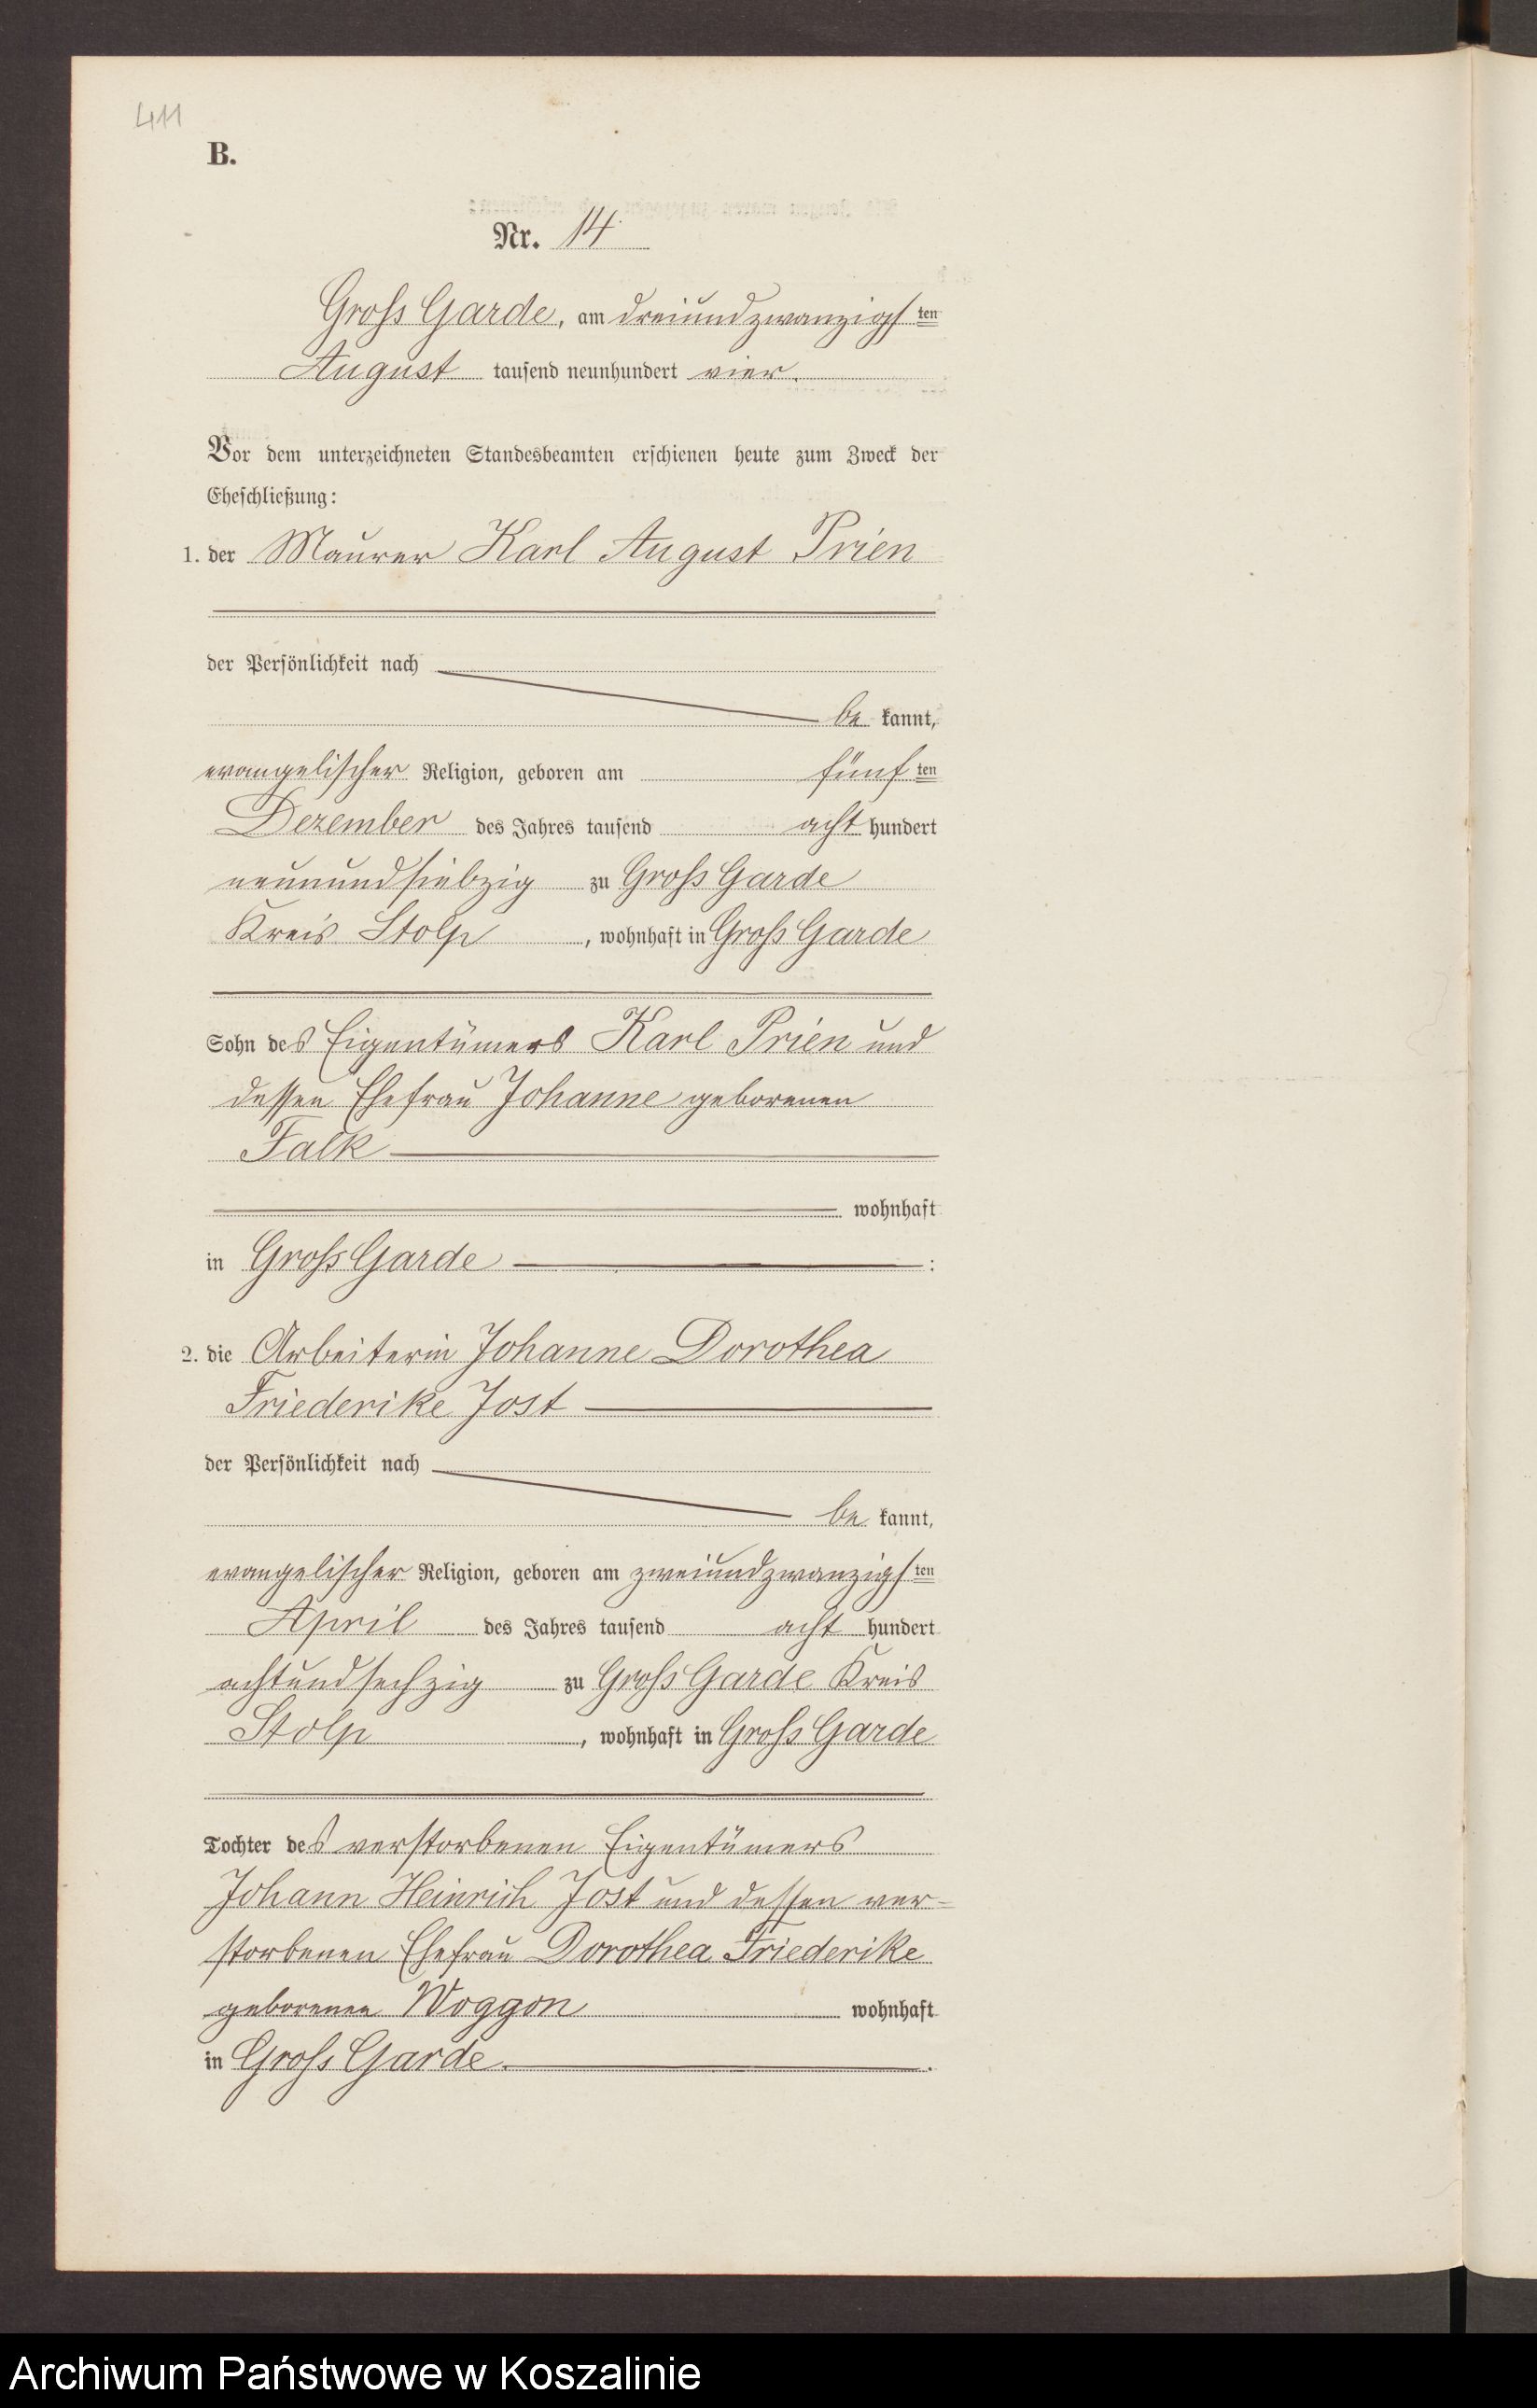 411
B.
Nr. 14
Gross Garde, am dreiundzwanzigsten
August tausend neunhundert vier.
Vor dem unterzeichneten Standesbeamten erschienen heute zum Zweck der
Eheschließung:
1. der Maurer Karl August Prien
der Persönlichkeit nach
be kannt,
evangelischer Religion, geboren am fünf ten
Dezember des Jahres tausend acht hundert
neunundsiebzig zu Gross Garde
Kreis Stolp, wohnhaft in Gross Garde
Sohn des Eigentümers Karl Prien und
dessen Ehefrau Johanne geborenen
Falk
wohnhaft
in Gross Garde :
2. die Arbeiterin Johanne Dorothea
Friederike Jost
der Persönlichkeit nach
be kannt,
evangelischer Religion, geboren am zweiundzwanzigsten
April des Jahres tausend acht hundert
achtundsechzig zu Gross Garde Kreis
Stolp, wohnhaft in Gross Garde
Tochter des verstorbenen Eigentümers
Johann Heinrich Jost und dessen ver-
storbenen Ehefrau Dorothea Friederike
geborenen Woggon wohnhaft
in Gross Garde.
Archiwum Państwowe w Koszalinie